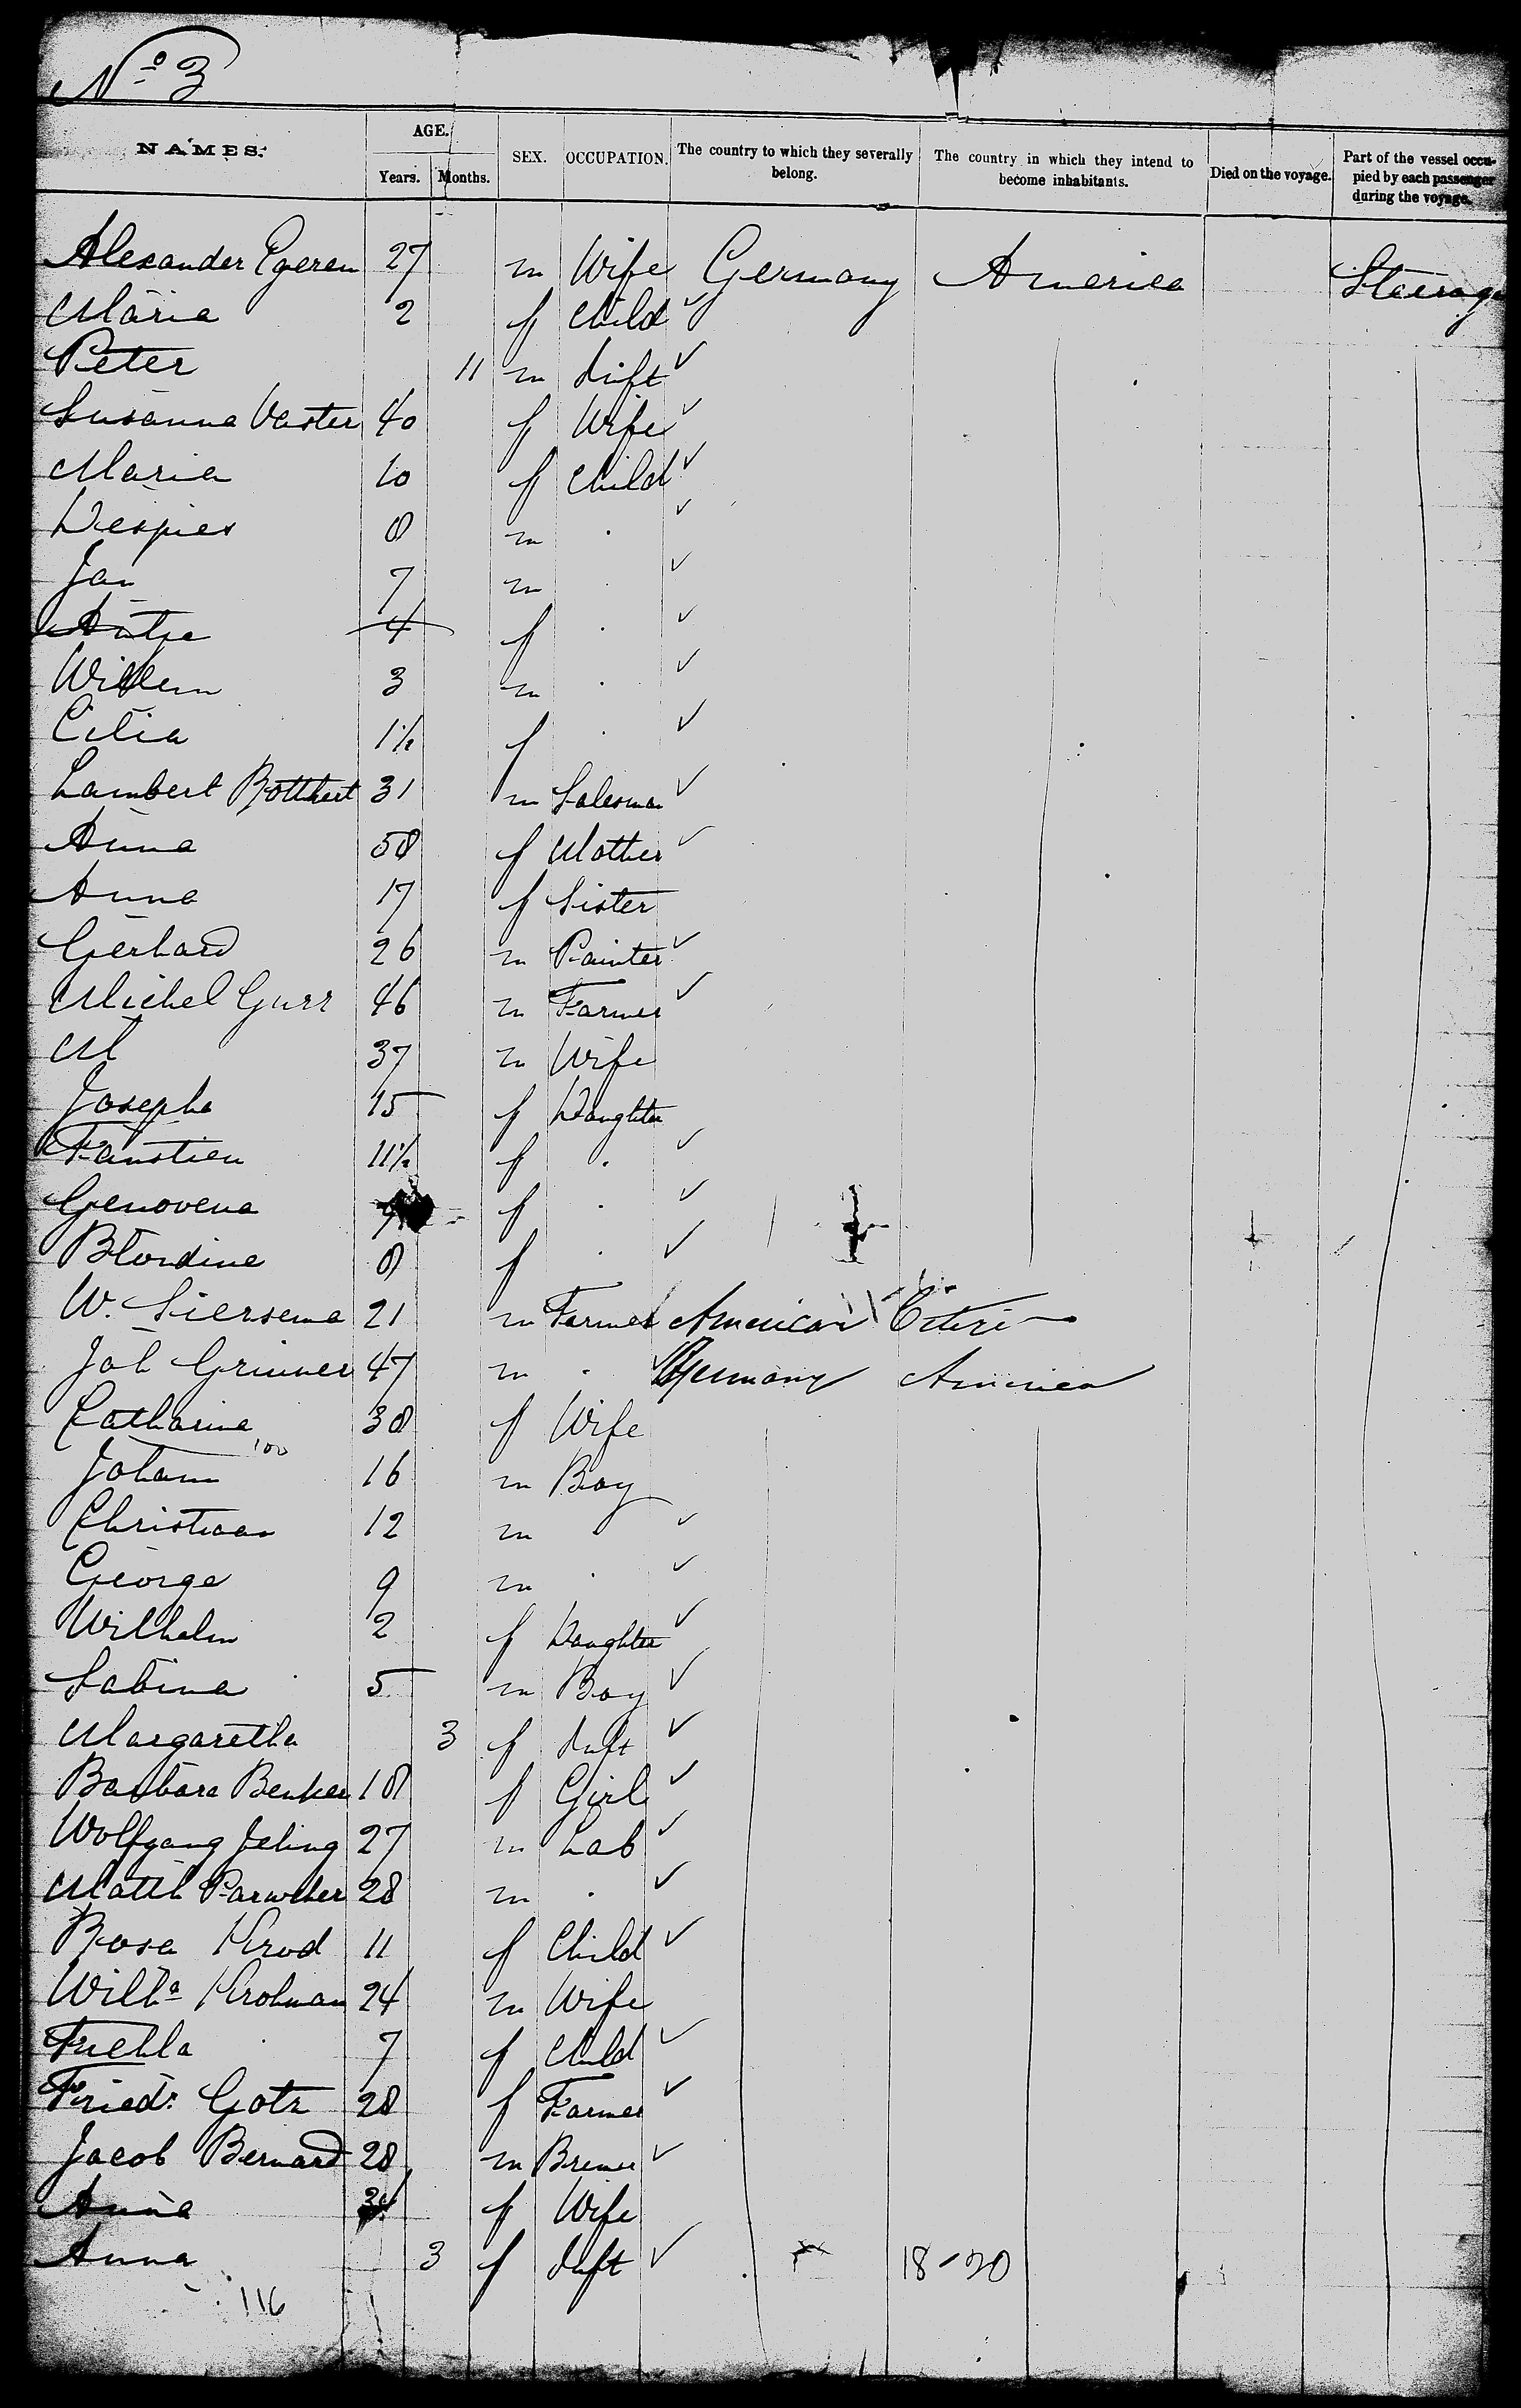 No 3
NAMES. AGE. Years. Months. SEX. OCCUPATION. The country to which they severally belong. The country in which they intend to become inhabitants. Died on the voyage. Part of the vessel occupied by each passenger during the voyage.
Alexander Egeren 27 m Wife Germany America Steerage
Maria 2 f Child ✓
Peter 11 m Inft ✓
Susanna Vaster 40 f Wife ✓
Maria 10 f Child ✓
8 m . ✓
Jan 7 m . ✓
Antje 4 f . ✓
Willem 3 m . ✓
Citia 1½ f . ✓
Lambert Botthert 31 m Salesman ✓
Anna 58 f Mother ✓
Anna 17 f Sister
Gerhard 26 m Painter ✓
Michel Gurr 46 m Farmer ✓
M 37 m Wife
Josepha 15 f Daughter
Faustien 11½ f . ✓
Genovena f . ✓
Blondine 8 f . ✓
W. Siersema 21 m Farmer American
Joh Grinner 47 m . Germany America
Catharine 38 f Wife
100
Johann 16 m Boy
Christiaan 12 m . ✓
George 9 m . ✓
Wilhelm 2 f Daughter ✓
Sabina 5 m Boy ✓
Margaretha 3 f Inft ✓
Barbara Benker 18 f Girl ✓
Wolfgang Jeling 27 m Lab ✓
Matth Parucker 28 m . ✓
Rosa Krod 11 f Child ✓
Willa Krohman 24 m Wife
7 f Child ✓
Friedr Gotz 28 f Farmer ✓
Jacob Bernard 28 m Brewer ✓
Anna f Wife
Anna 3 f Inft ✓ 18-20
116